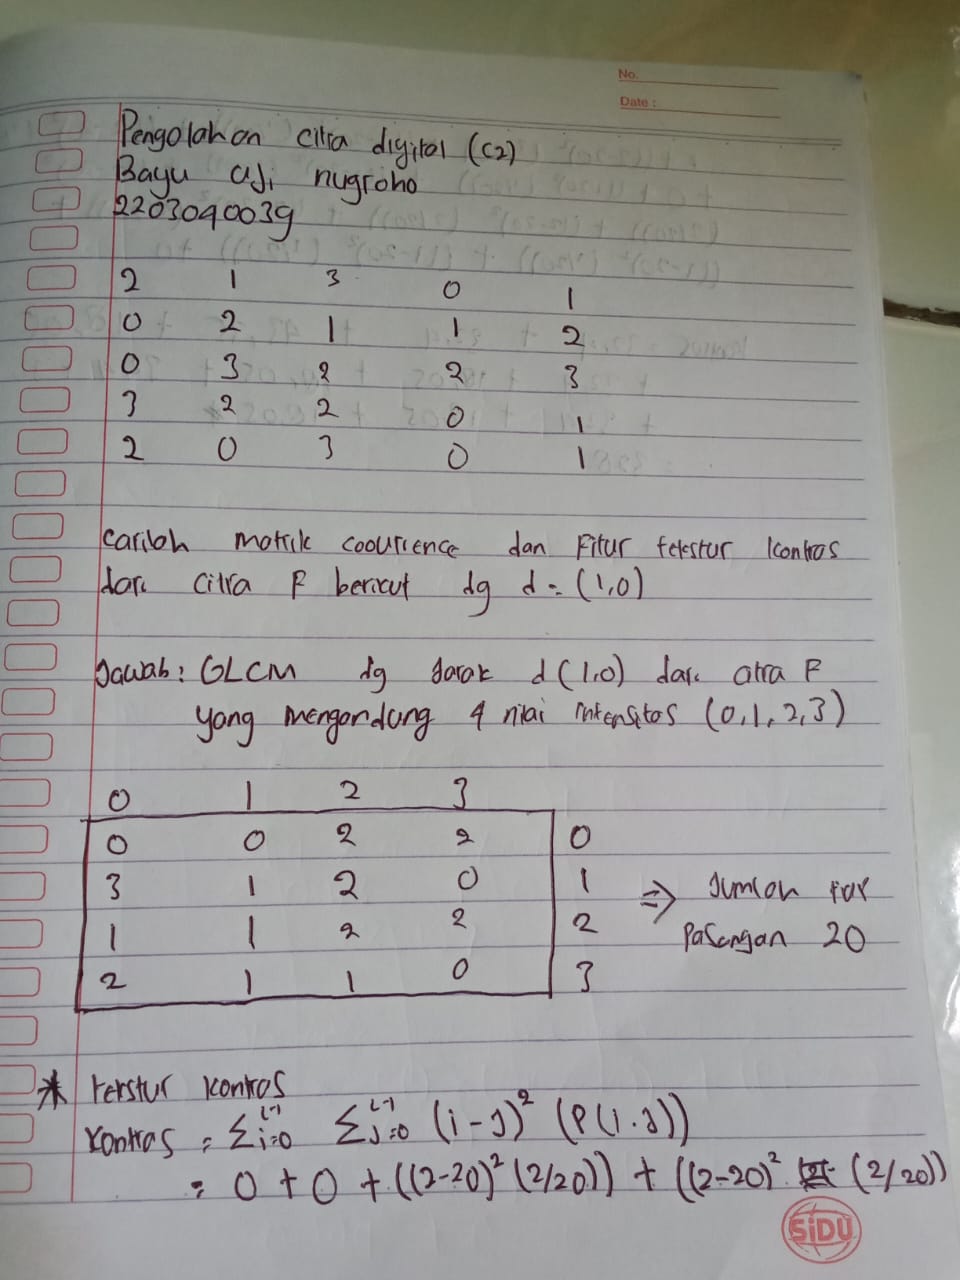 No.
Date :
Pengolahan citra digital (C2)
Bayu aji nugroho
2203040039
2 1 3 0 1
0 2 1 1 2
0 3 2 2 3
3 2 2 0 1
2 0 3 0 1
Carilah matrik coourience dan Fitur tekstur kontras
dari citra F berikut dg d = (1,0)
Jawab : GLCM dg jarak d (1,0) dari citra F
yang mengandung 4 nilai intensitas (0,1,2,3)
0 1 2 3
0 0 2 2 0
3 1 2 0 1 ⇒ Jumlah
1 1 2 2 2 Pasangan 20
2 1 1 0 3
* tekstur kontras
kontras = Σi=0 L-1 Σj=0 L-1 (i-j)² (P(i.j))
= 0 + 0 + ((2-20)² (2/20)) + ((2-20)² (2/20))
SiDU